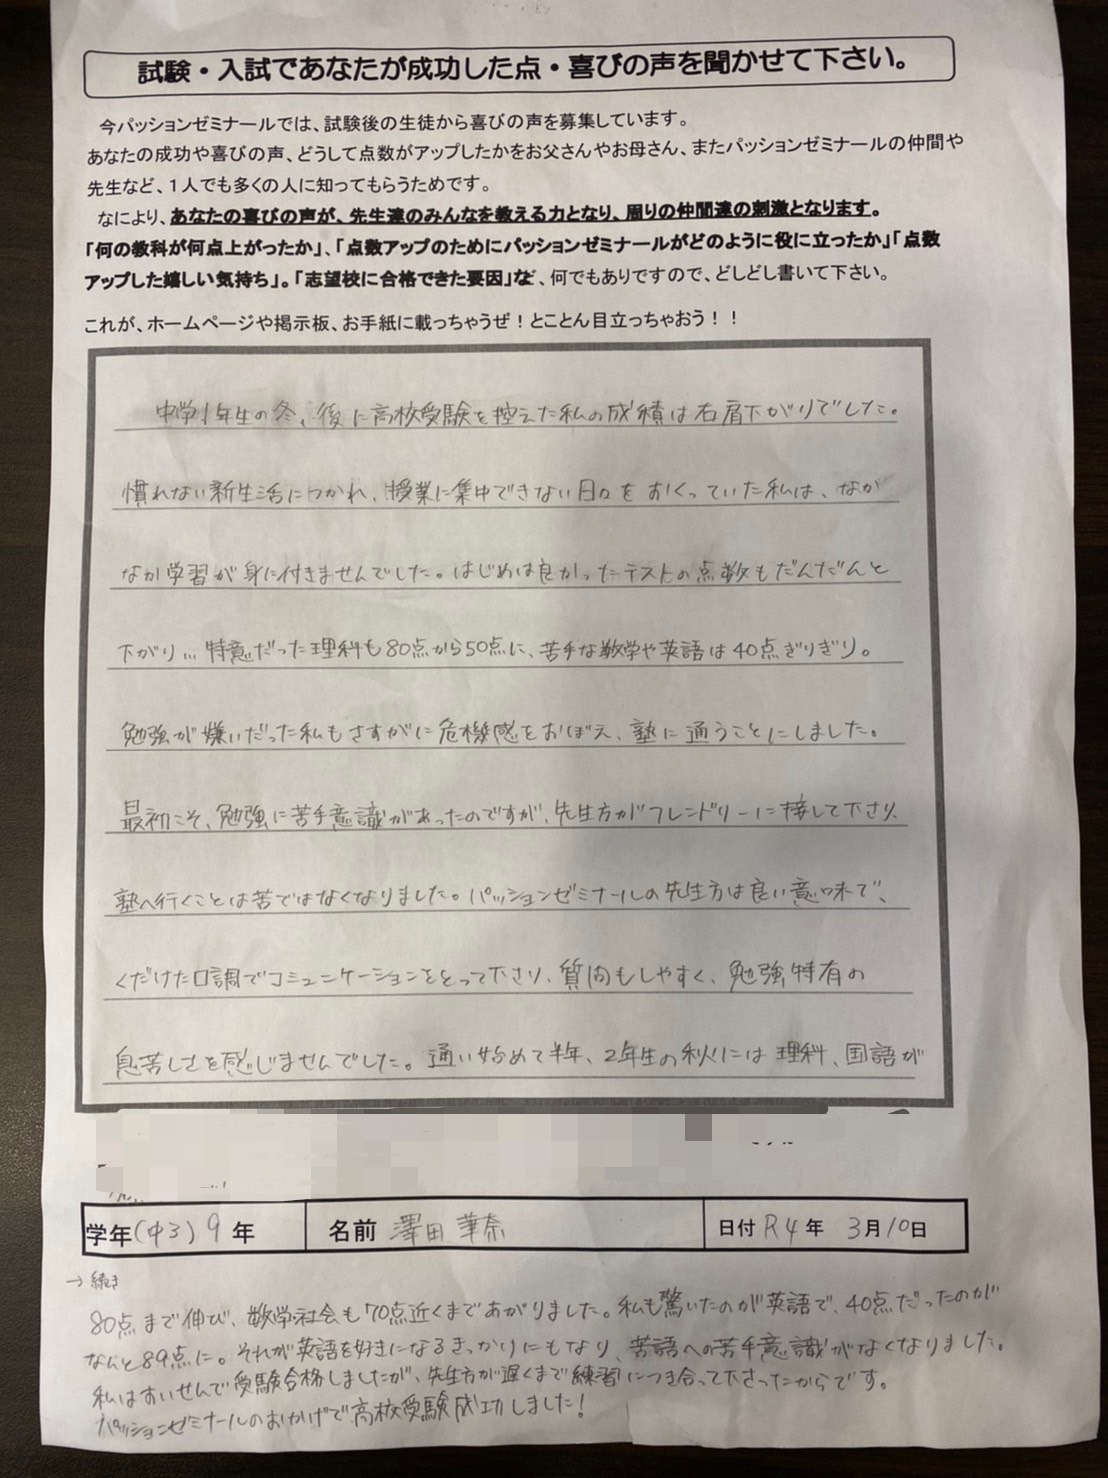 試験・入試であなたが成功した点・喜びの声を聞かせて下さい。
今パッションゼミナールでは、試験後の生徒から喜びの声を募集しています。
あなたの成功や喜びの声、どうして点数がアップしたかをお父さんやお母さん、またパッションゼミナールの仲間や
先生など、1人でも多くの人に知ってもらうためです。
なにより、あなたの喜びの声が、先生達のみんなを教える力となり、周りの仲間達の刺激となります。
「何の教科が何点上がったか」、「点数アップのためにパッションゼミナールがどのように役に立ったか」「点数
アップした嬉しい気持ち」。「志望校に合格できた要因」など、何でもありですので、どしどし書いて下さい。
これが、ホームページや掲示板、お手紙に載っちゃうぜ！とことん目立っちゃおう！！
中学1年生の冬、後に高校受験を控えた私の成積は右肩下がりでした。
慣れない新生活につかれ、授業に集中できない日々をおくっていた私は、なか
なか学習が身に付きませんでした。はじめは良かったテストの点数もだんだんと
下がり…特意だった理科も80点から50点に、苦手な数学や英語は40点ぎりぎり。
勉強が嫌いだった私もさすがに危機感をおぼえ、塾に通うことにしました。
最初こそ、勉強に苦手意識があったのですが、先生方がフレンドリーに接して下さり、
塾へ行くことは苦ではなくなりました。パッションゼミナールの先生方は良い意味で、
くだけた口調でコミュニケーションをとって下さり、質問もしやすく、勉強特有の
息苦しさを感じませんでした。通い始めて半年、2年生の秋には理科、国語が
学年(中3) 9年 名前 澤田 華奈 日付 R4年 3月10日
→続き
80点まで伸び、数学社会も70点近くまであがりました。私も驚いたのが英語で、40点だったのが
なんと89点に。それが英語を好きになるきっかりにもなり、苦語への苦手意識がなくなりました。
私はすいせんで受験合格しましたが、先生方が遅くまで練習につき合って下さったからです。
パッションゼミナールのおかげで高校受験成功しました!